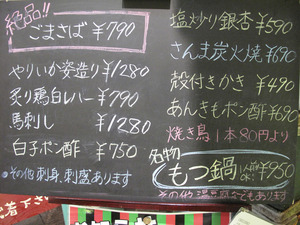 絶品!!
ごまさば ¥790
やりいか姿造り ¥1280
炙り鶏白レバー ¥790
馬刺し ¥1280
白子ポン酢 ¥750
その他 刺身、刺盛あります
塩炒り銀杏 ¥590
さんま炭火焼 ¥690
殻付きかき ¥490
あんきもポン酢 ¥690
焼き鳥 1本80円より
名物
もつ鍋 ¥950
その他 一品もあります